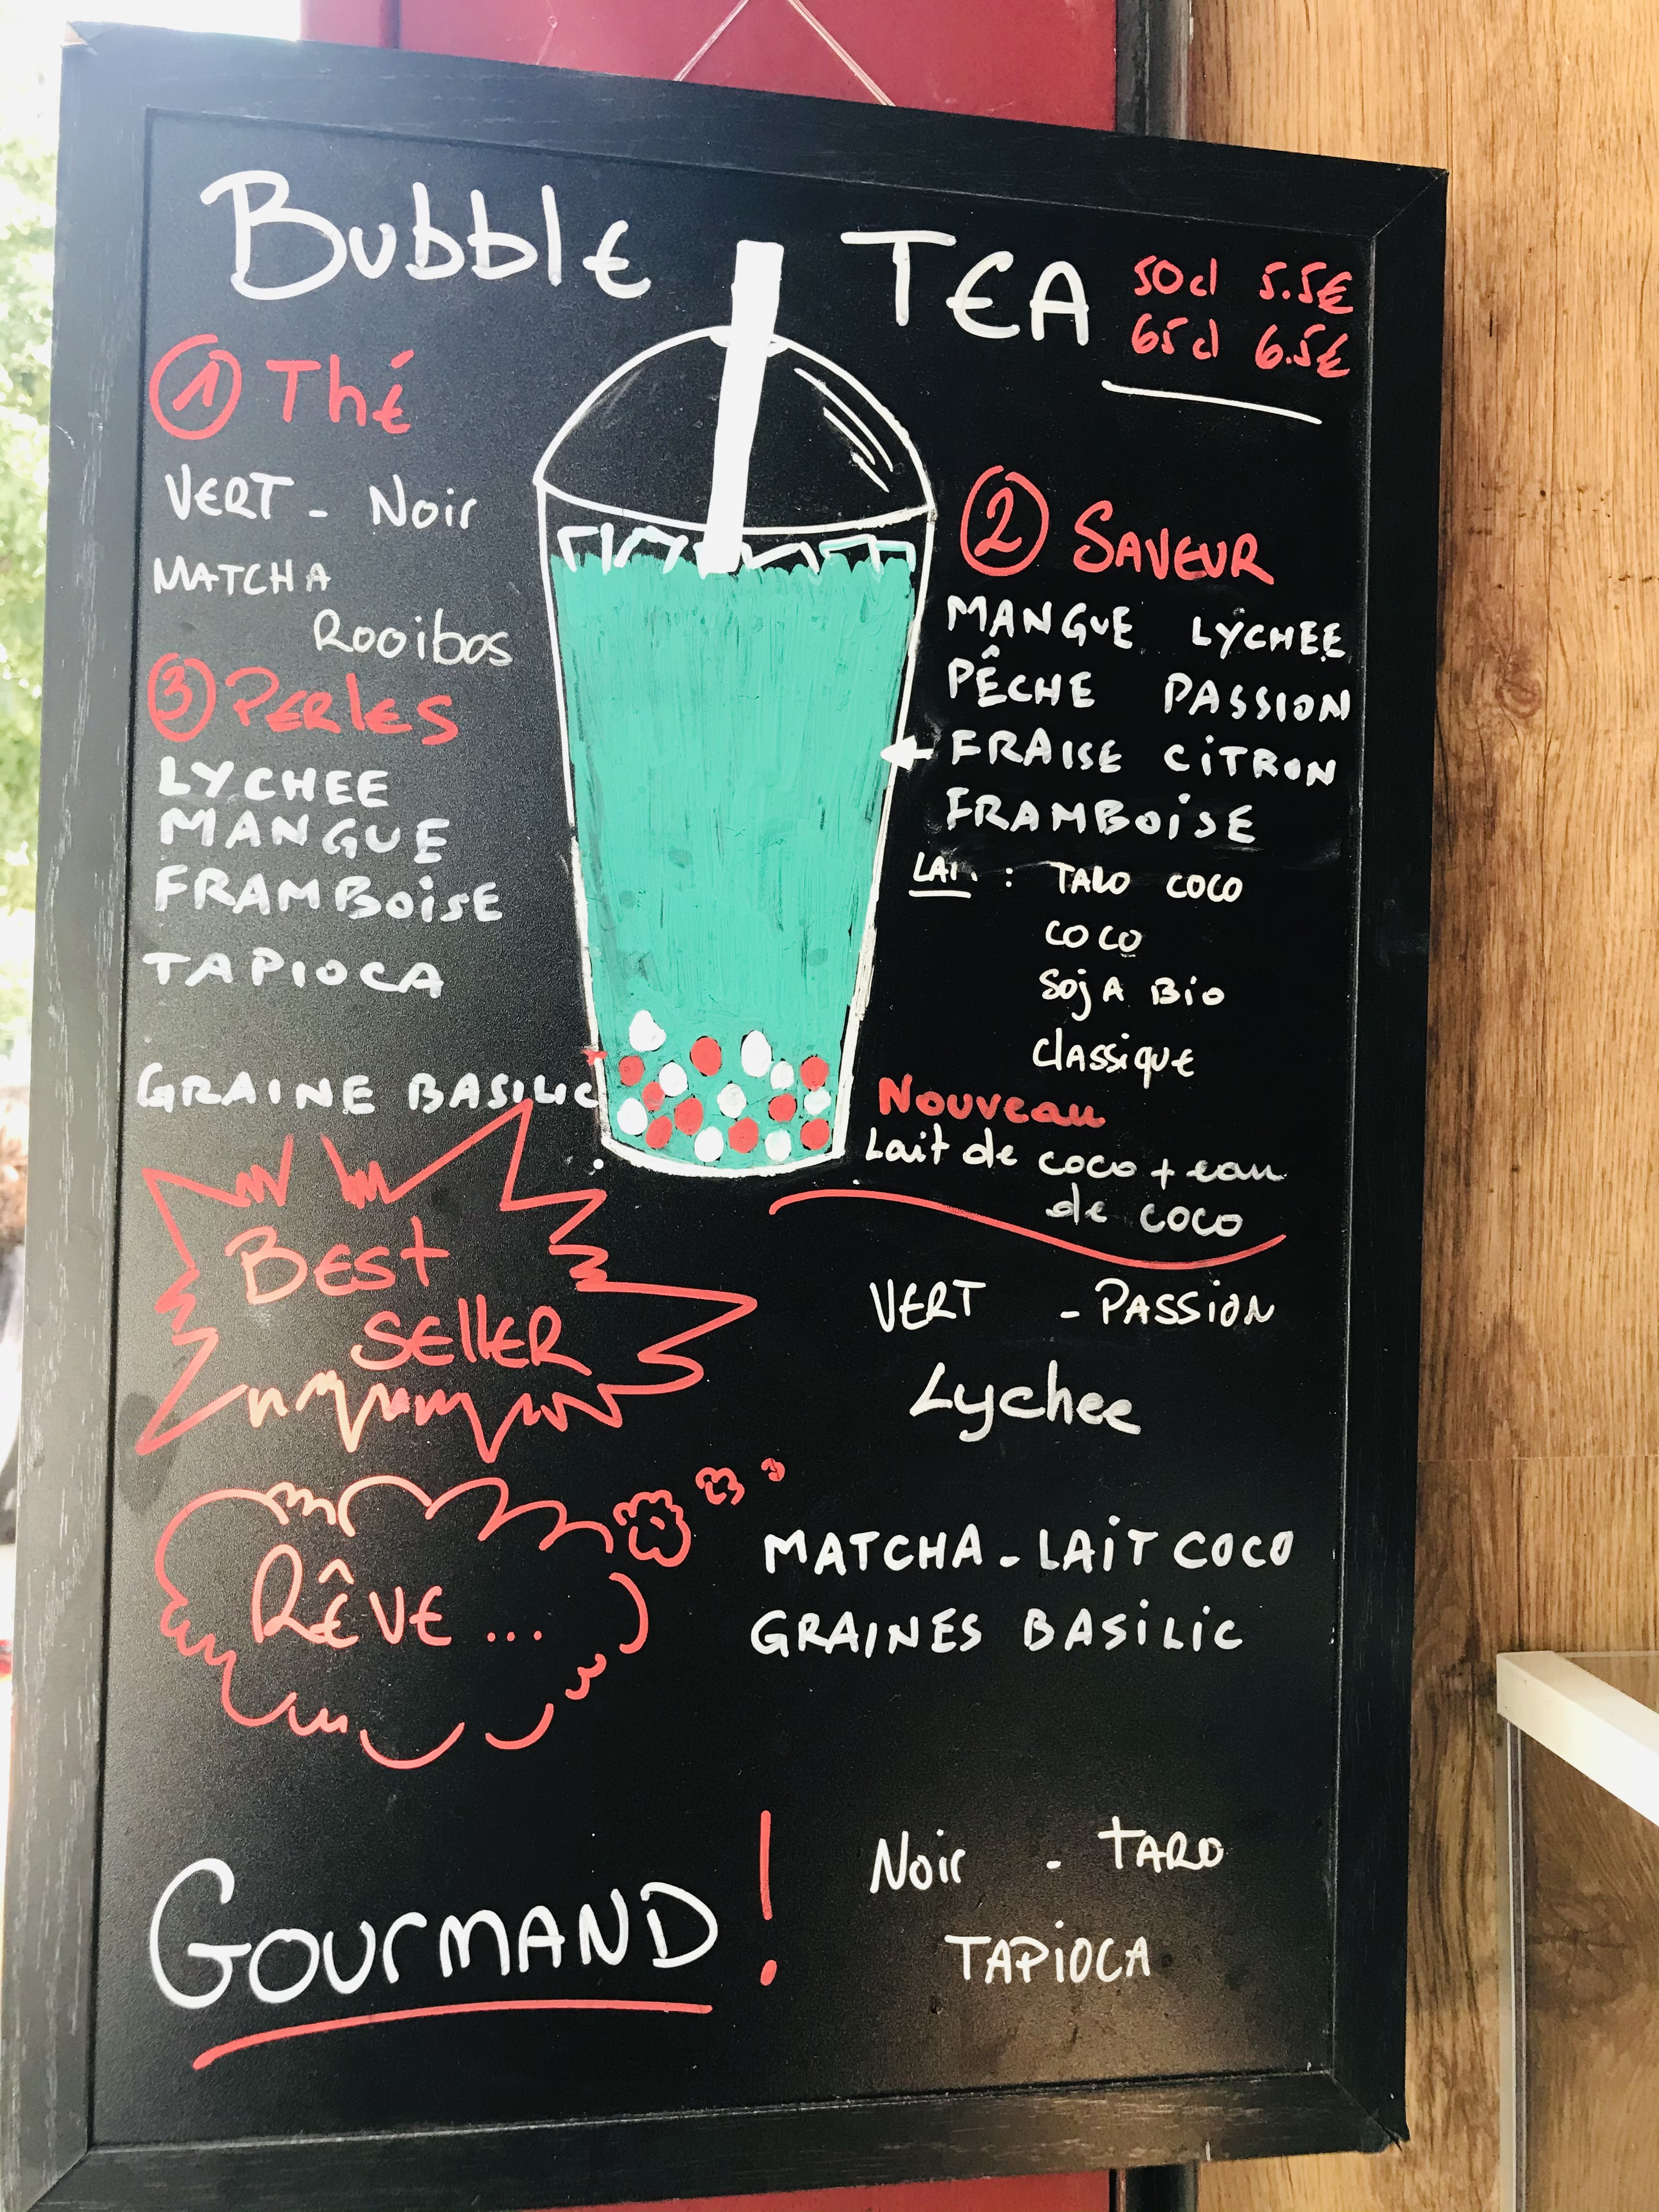 Bubble TEA
50cl 5.5€
65cl 6.5€
① Thé
VERT - Noir
MATCHA
Rooibos
② SAVEUR
MANGUE LYCHEE
PÊCHE PASSION
FRAISE CITRON
FRAMBOISE
LAIT : TARO COCO
COCO
SOJA BIO
Classique
Nouveau
Lait de coco + eau
de coco
③ Perles
LYCHEE
MANGUE
FRAMBOISE
TAPIOCA
GRAINE BASILIC
BEST
SELLER
VERT - PASSION
Lychee
RÊVE ...
MATCHA - LAIT COCO
GRAINES BASILIC
GOURMAND !
Noir - TARO
TAPIOCA